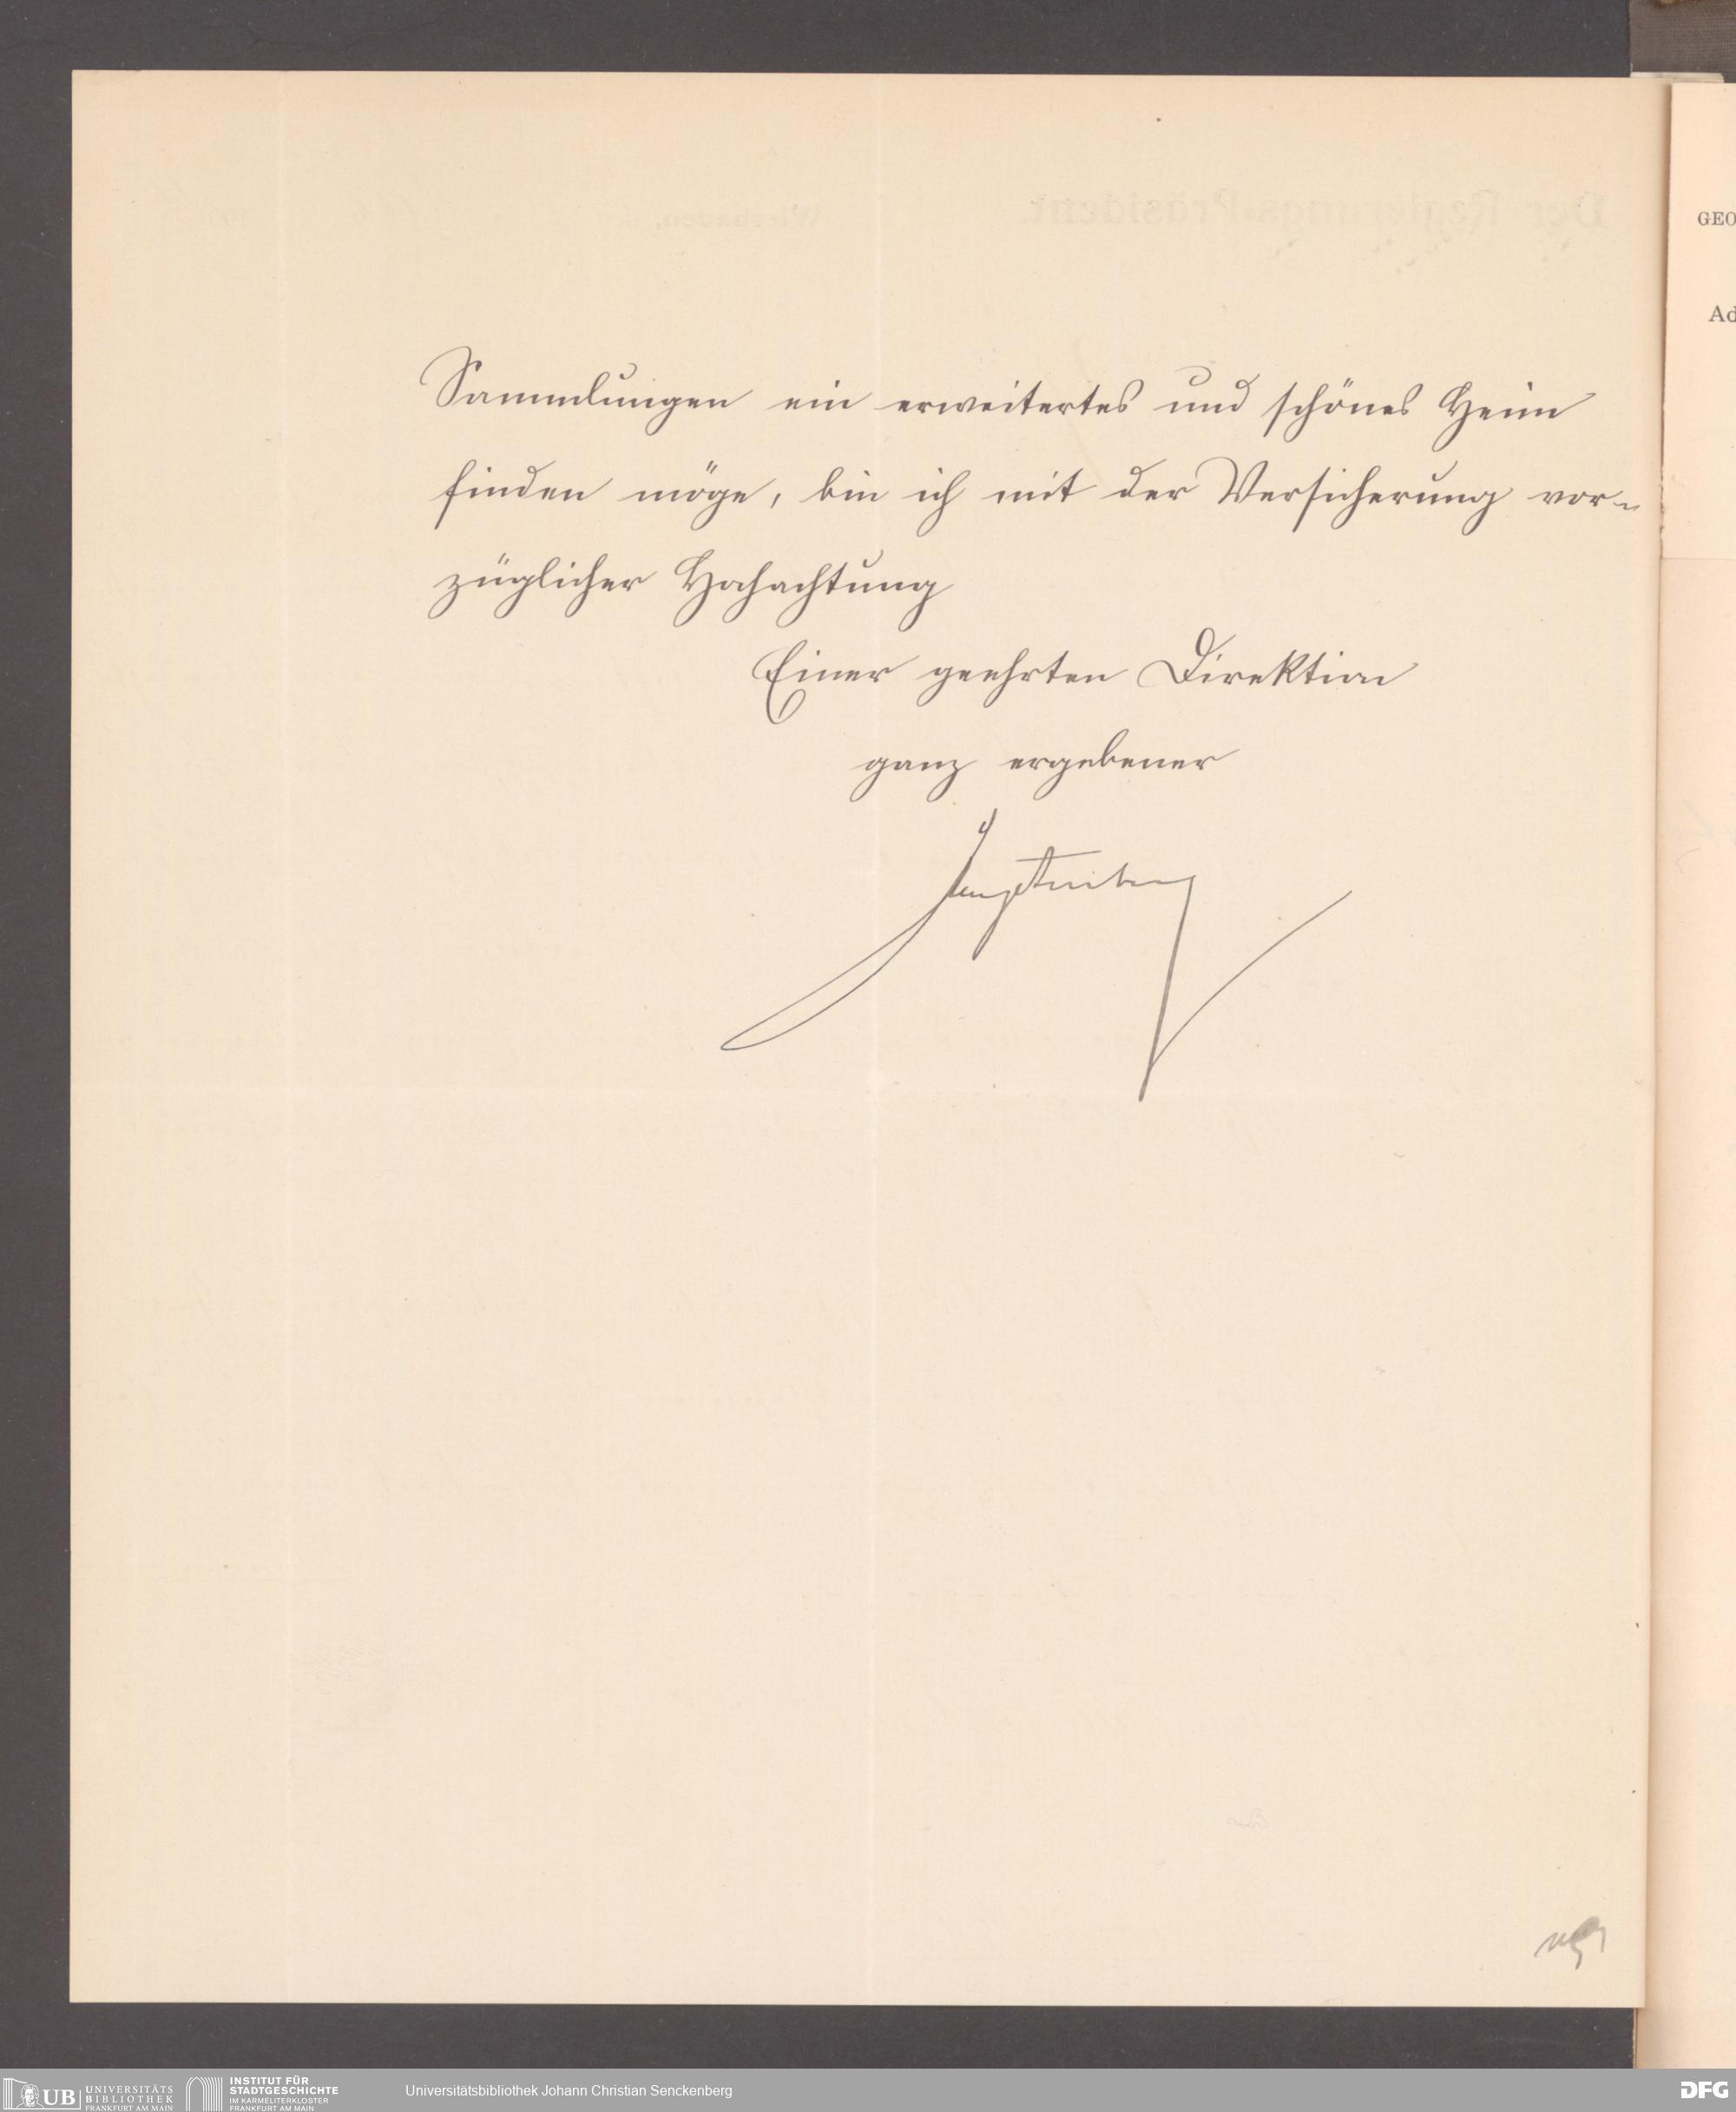 Sammlungen ein erweitertes und schönes Heim
finden möge, bin ich mit der Versicherung vor-
züglicher Hochachtung
Einer geehrten Direktion
ganz ergebener
GEO
Ad
UB UNIVERSITÄTS
BIBLIOTHEK
FRANKFURT AM MAIN
INSTITUT FÜR
STADTGESCHICHTE
IM KARMELITERKLOSTER
FRANKFURT AM MAIN
Universitätsbibliothek Johann Christian Senckenberg
DFG